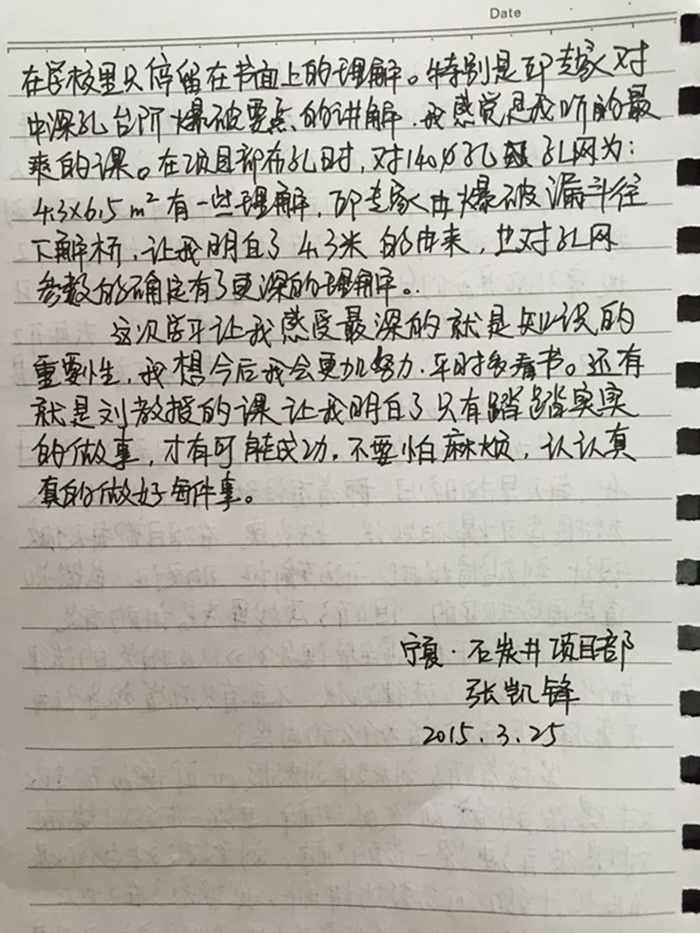 Date
在学校里只停留在书面上的理解。特别是邵专家对
中深孔台阶爆破要点的讲解，我感觉是我听的最
爽的课。在项目部布孔时，对140孔孔网为：
4.3×6.5m²有一些理解，邵专家由爆破漏斗往
下解析，让我明白了4.3米的由来，也对孔网
参数的确定有了更深的理解。
这次学习让我感受最深的就是知识的
重要性，我想今后我会更加努力，平时多看书。还有
就是刘教授的课让我明白了只有踏踏实实
的做事，才有可能成功，不要怕麻烦，认认真
真的做好每件事。
宁夏·石炭井项目部
张凯锋
2015.3.25